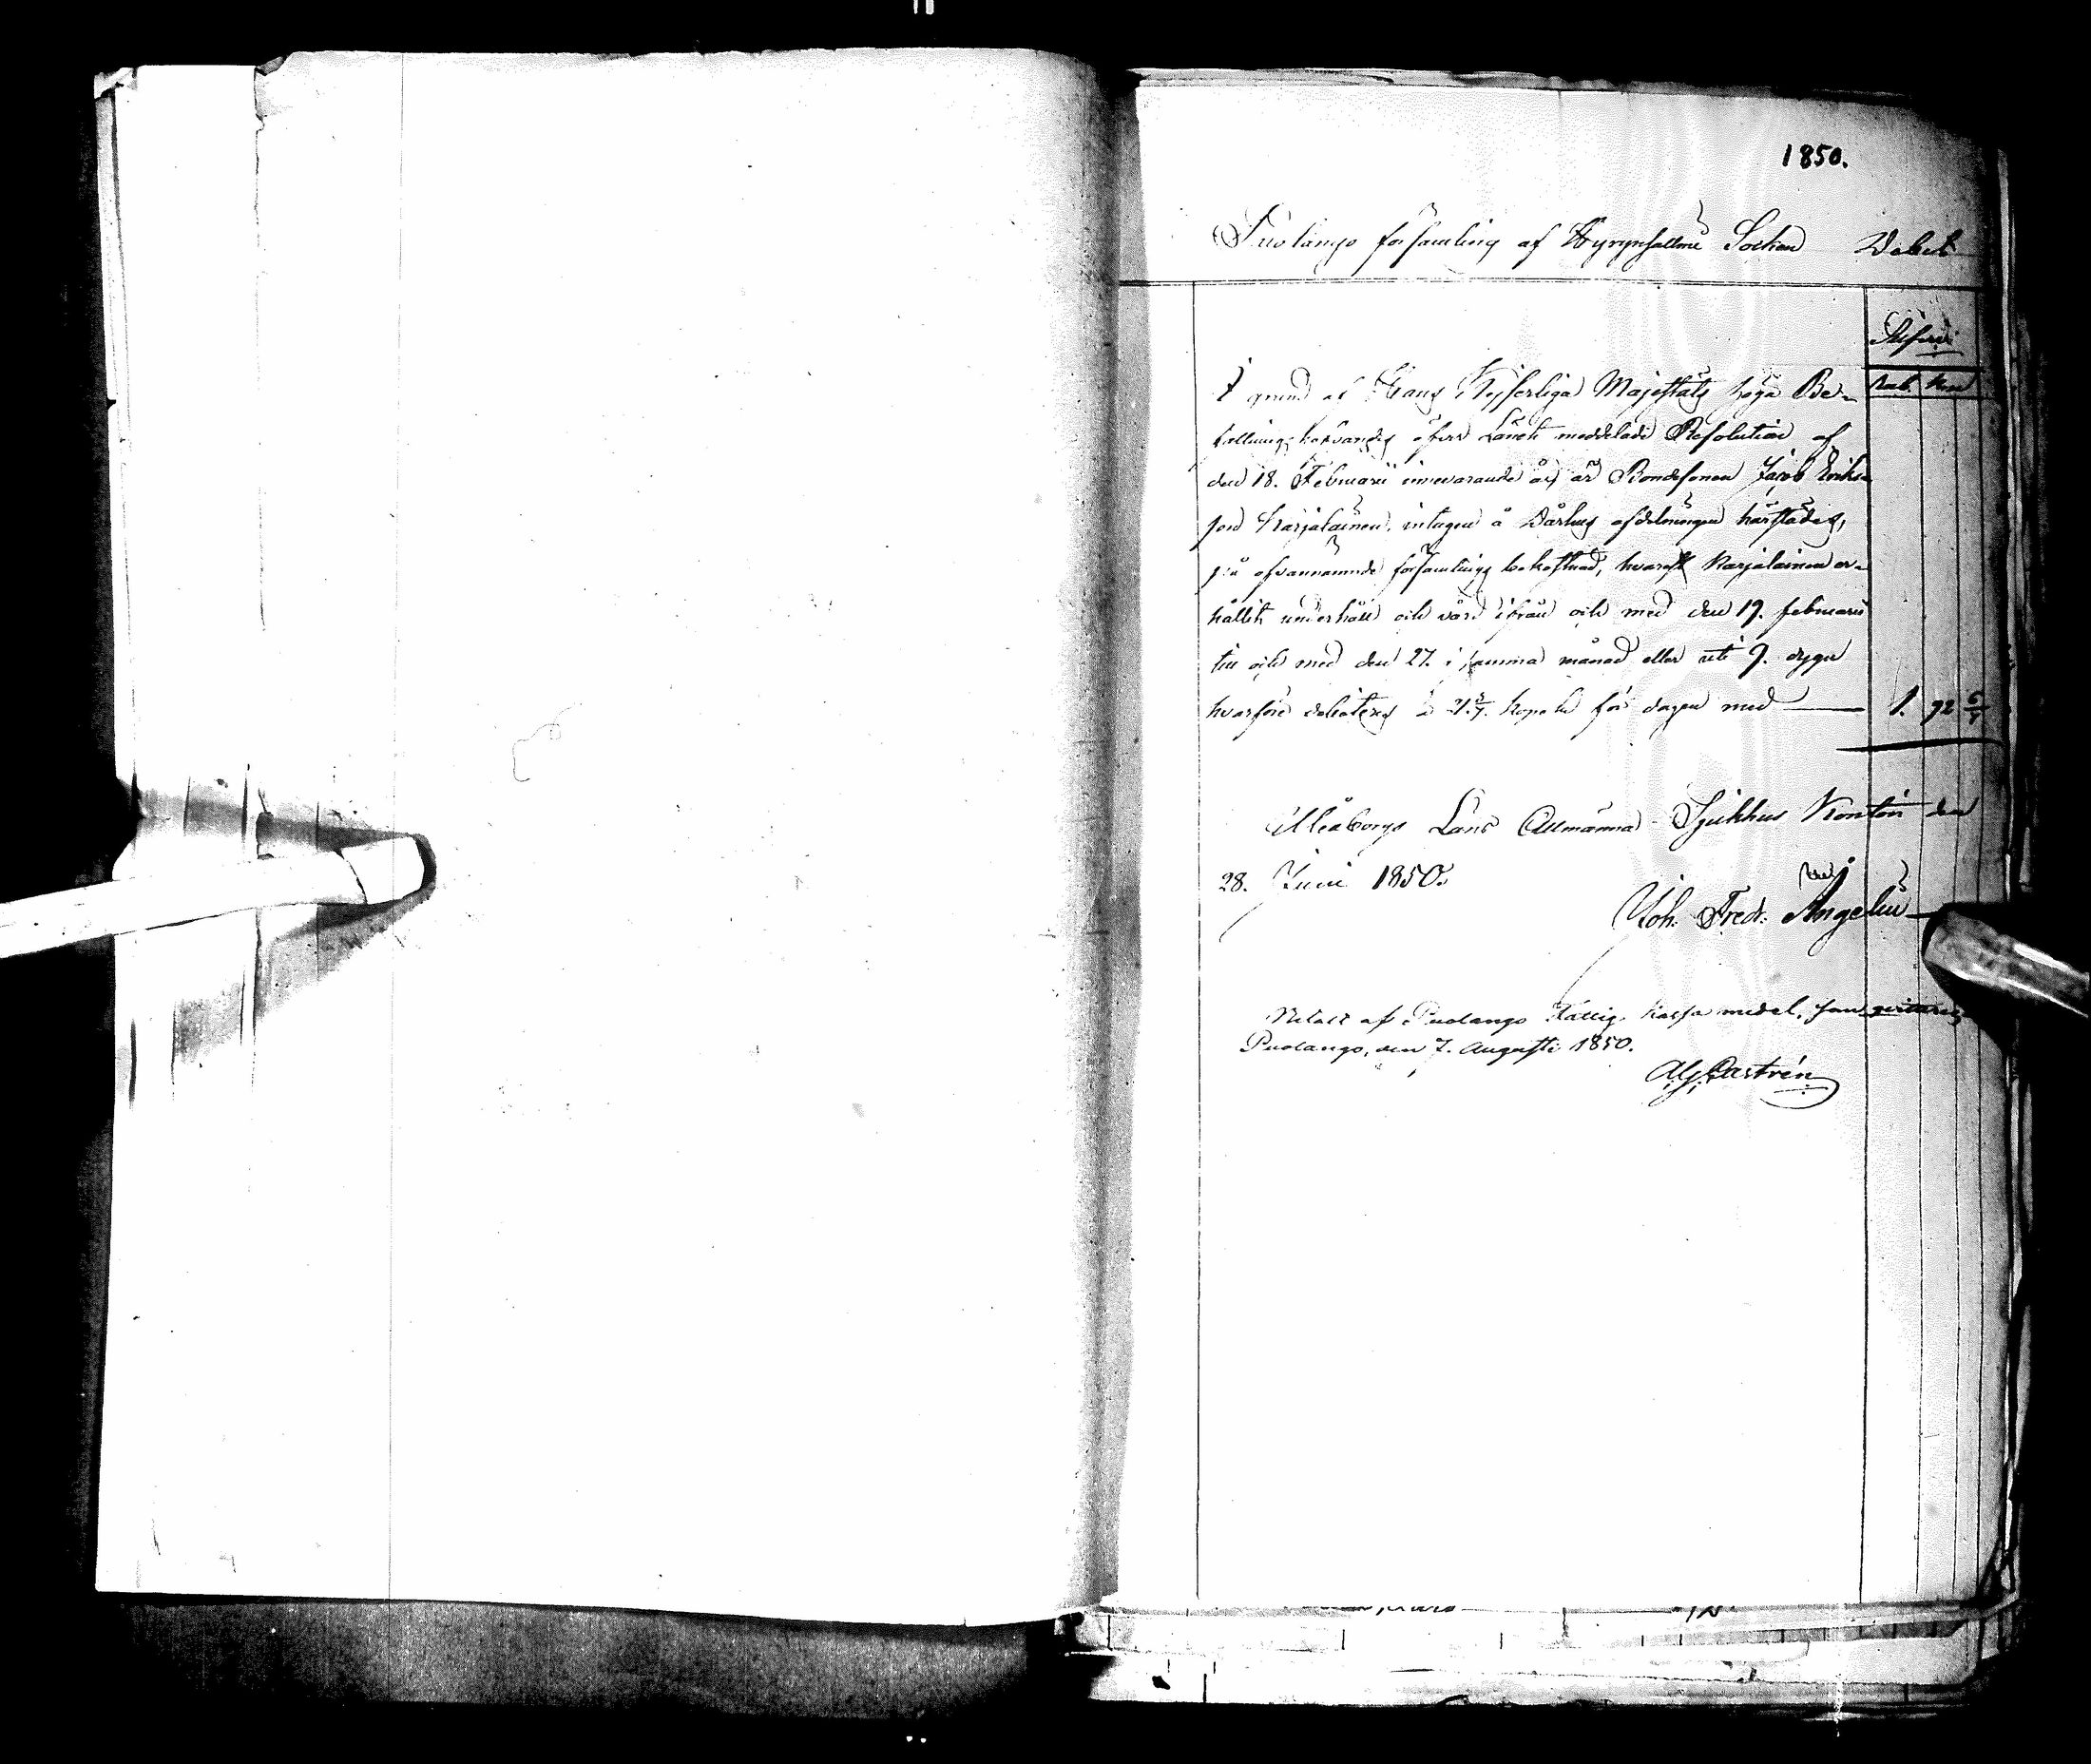 1850.
Puolango församling af Hyrynsalmi Socken Debet
Silfver
Rub. Kop.
I grund af Hans Kejserliga Majestäts höga Be-
fallningshafvandes öfver Länet meddelade Resolution af
den 18. Februarii innevarande år, är Bondesonen Jacob Eriks-
son Karjalainen, intagen å Dårhus afdelningen härstädes,
på ofvannämnde församlings bekostnad, hvaraf Karjalainen er-
hållit underhåll och vård ifrån och med den 19. februarii
till och med den 27. i samma månad eller uti 9. dygn
hvarföre debiteras à 21.3/7. kopek för dagen med 1. 92 6/7
Uleåborgs Läns Allmänna Sjukhus Kontor den
28. Juni 1850.
Joh. Fredr. Angelin
Betalt af Puolango Fattig kassa medel, som qvitteras
Puolango, den 7. Augusti 1850.
Castrén